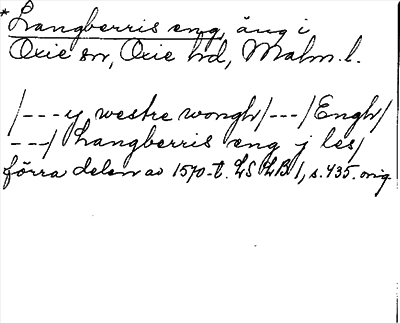 *Langberris eng, äng i
Oxie sn, Oxie hd, Malm. l.
/---y westre wongh/---/Engh/
---/ Langberris eng j les/
förra delen av 1570-t. LSLB 1, s. 435. orig.